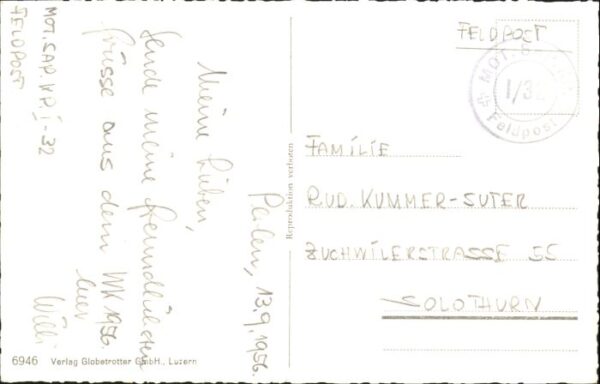 Perlen, 13.9.1956.
Meine Lieben,
Sende meine freundlichsten
Grüsse aus dem WK 1956.
Euer
Willi
MOT. SAP. KP. I-32
FELDPOST
6946 Verlag Globetrotter GmbH., Luzern
Reproduktion verboten
FELDPOST
MOT.
I/32
Feldpost
FAMILIE
RUD. KUMMER-SUTER
ZUCHWILERSTRASSE 55
SOLOTHURN